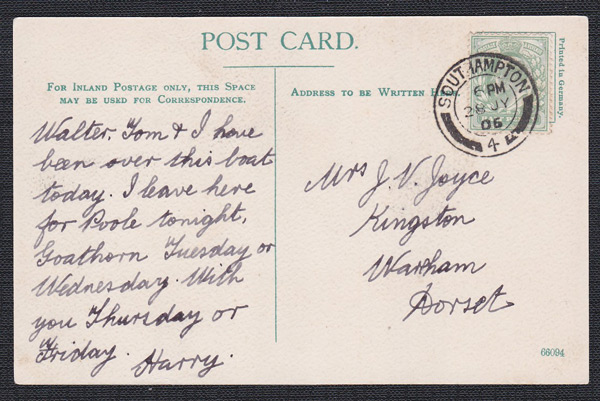 POST CARD.
FOR INLAND POSTAGE ONLY, THIS SPACE
MAY BE USED FOR CORRESPONDENCE.
Walter, Tom & I have
been over this boat
today. I leave here
for Poole tonight,
Goathorn Tuesday or
Wednesday. With
you Thursday or
Friday.
Harry.
ADDRESS TO BE WRITTEN HERE.
Mrs J. V. Joyce
Kingston
Warham
Dorset
SOUTHAMPTON
6 PM
28 JY
06
4
Printed in Germany.
66094